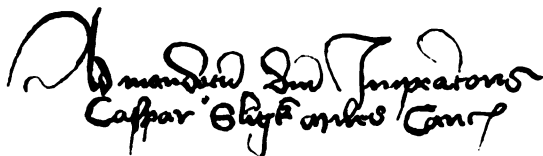 Ad mandatū dnī Imperatoris
Caspar Sligk miles Canc